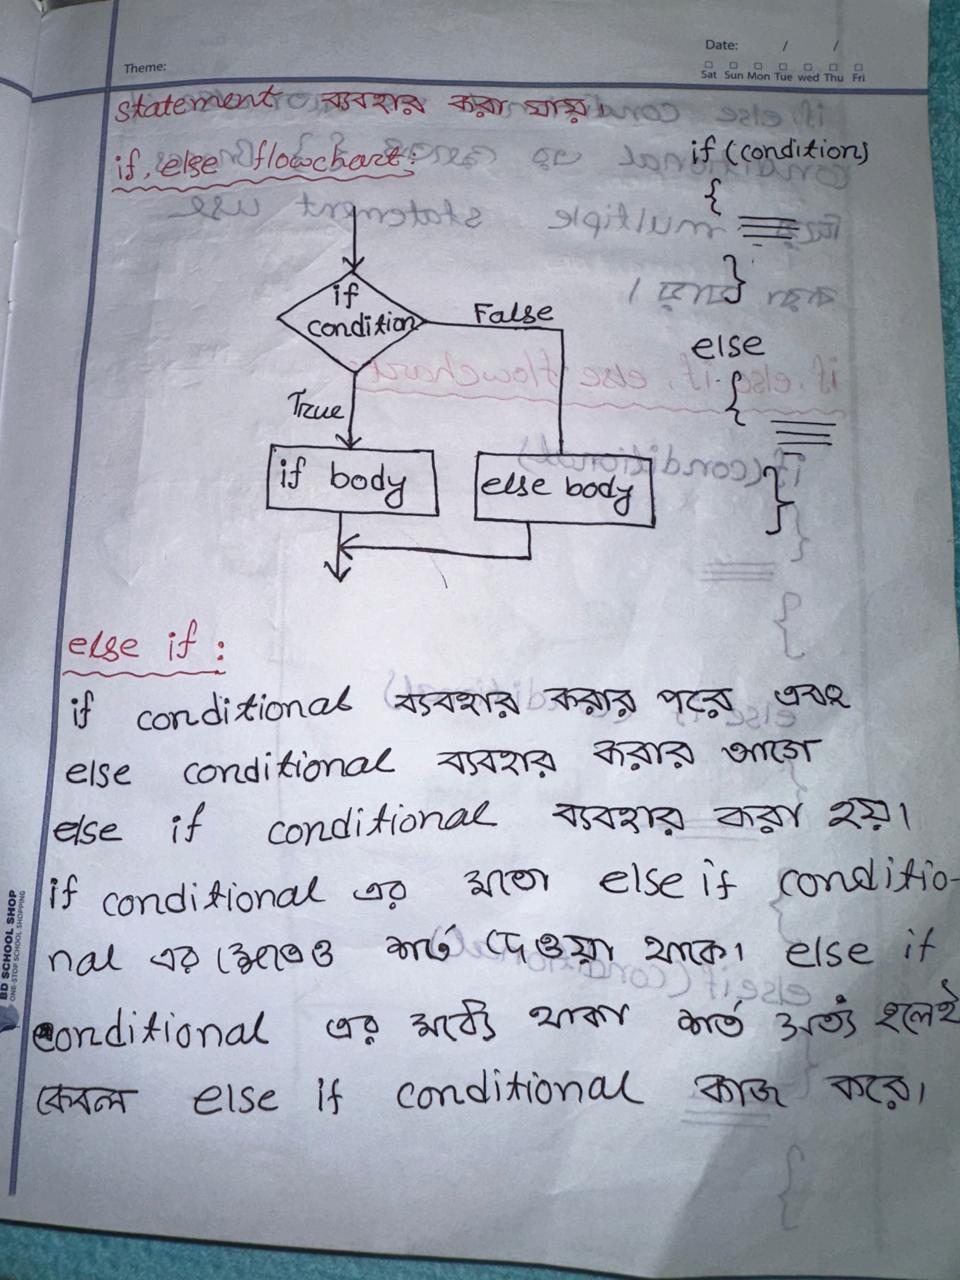 Theme:
Date: / /
Sat Sun Mon Tue wed Thu Fri
statement ব্যবহার করা যায়
if, else flowchart:
if (condition)
{
}
else
{
}
if
condition
False
True
if body
else body
else if :
if conditional ব্যবহার করার পরে এবং
else conditional ব্যবহার করার আগে
else if conditional ব্যবহার করা হয়।
if conditional এর মতো else if conditio-
nal এর ক্ষেত্রেও শর্ত দেওয়া থাকে। else if
conditional এর মধ্যে থাকা শর্ত সত্য হলেই
কেবল else if conditional কাজ করে।
BD SCHOOL SHOP
ONE-STOP SCHOOL SHOPPING